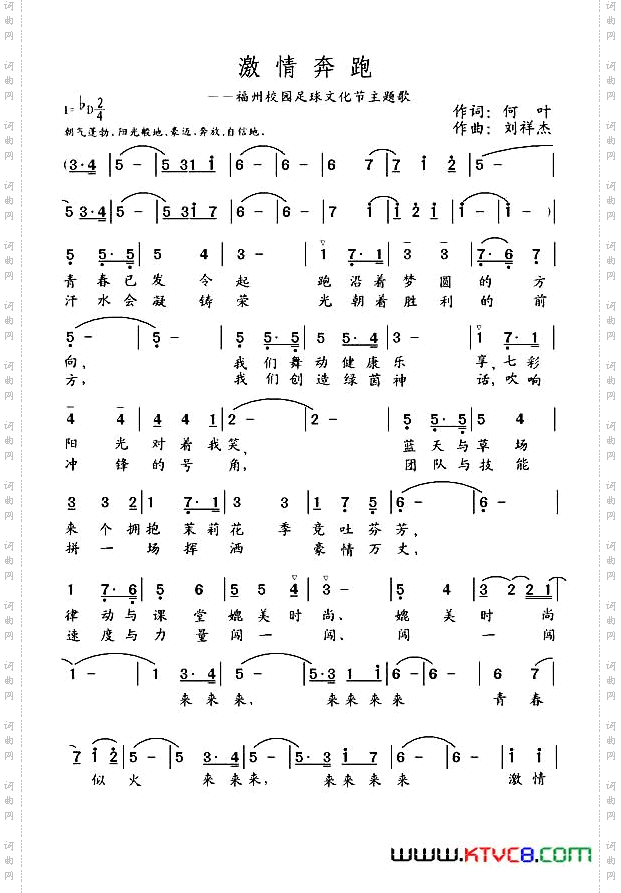 激情奔跑
——福州校园足球文化节主题歌
1=♭D 2/4
作词：何 叶
朝气蓬勃、阳光般地、豪迈、奔放、自信地。
作曲：刘祥杰
(3·4 5 - 5 31 1 6 - 6 - 6 7 7 1 2 5 -
5 3·4 5 - 5 31 7 6 - 6 - 7 1 1 2 1 1 - 1 - )
5 5·5 5 4 3 - 1 7·1 3 3 7·6 7
青春已发令起 跑沿着梦圆的方
汗水会凝铸荣 光朝着胜利的前
5 - 5 - 5 5·5 5 5·4 3 - 1 7·1
向， 我们舞动健康乐 享，七彩
方， 我们创造绿茵神 话，吹响
4 4 4 4 1 2 - 2 - 5 5·5 5 4
阳光对着我笑， 蓝天与草场
冲锋的号角， 团队与技能
3 3 2 1 7·1 3 3 1 7 5 6 - 6 -
来个拥抱茉莉花季竞吐芬芳，
拼一场挥洒 豪情万丈，
1 7·6 5 6 5 5 4 3 - 5 4 3 2 2 1
律动与课堂媲美时尚、 媲美时尚
速度与力量闯一闯、 闯一闯
1 - 1 - 3·4 5 - 5·3 1 6 - 6 - 6 6
来来来， 来来来来 青春
7 1 2 5 - 5 3·4 5 - 5·3 1 6 - 6 - 1 1
似火 来来来， 来来来来 激情
www.KTVC8.com
词曲网